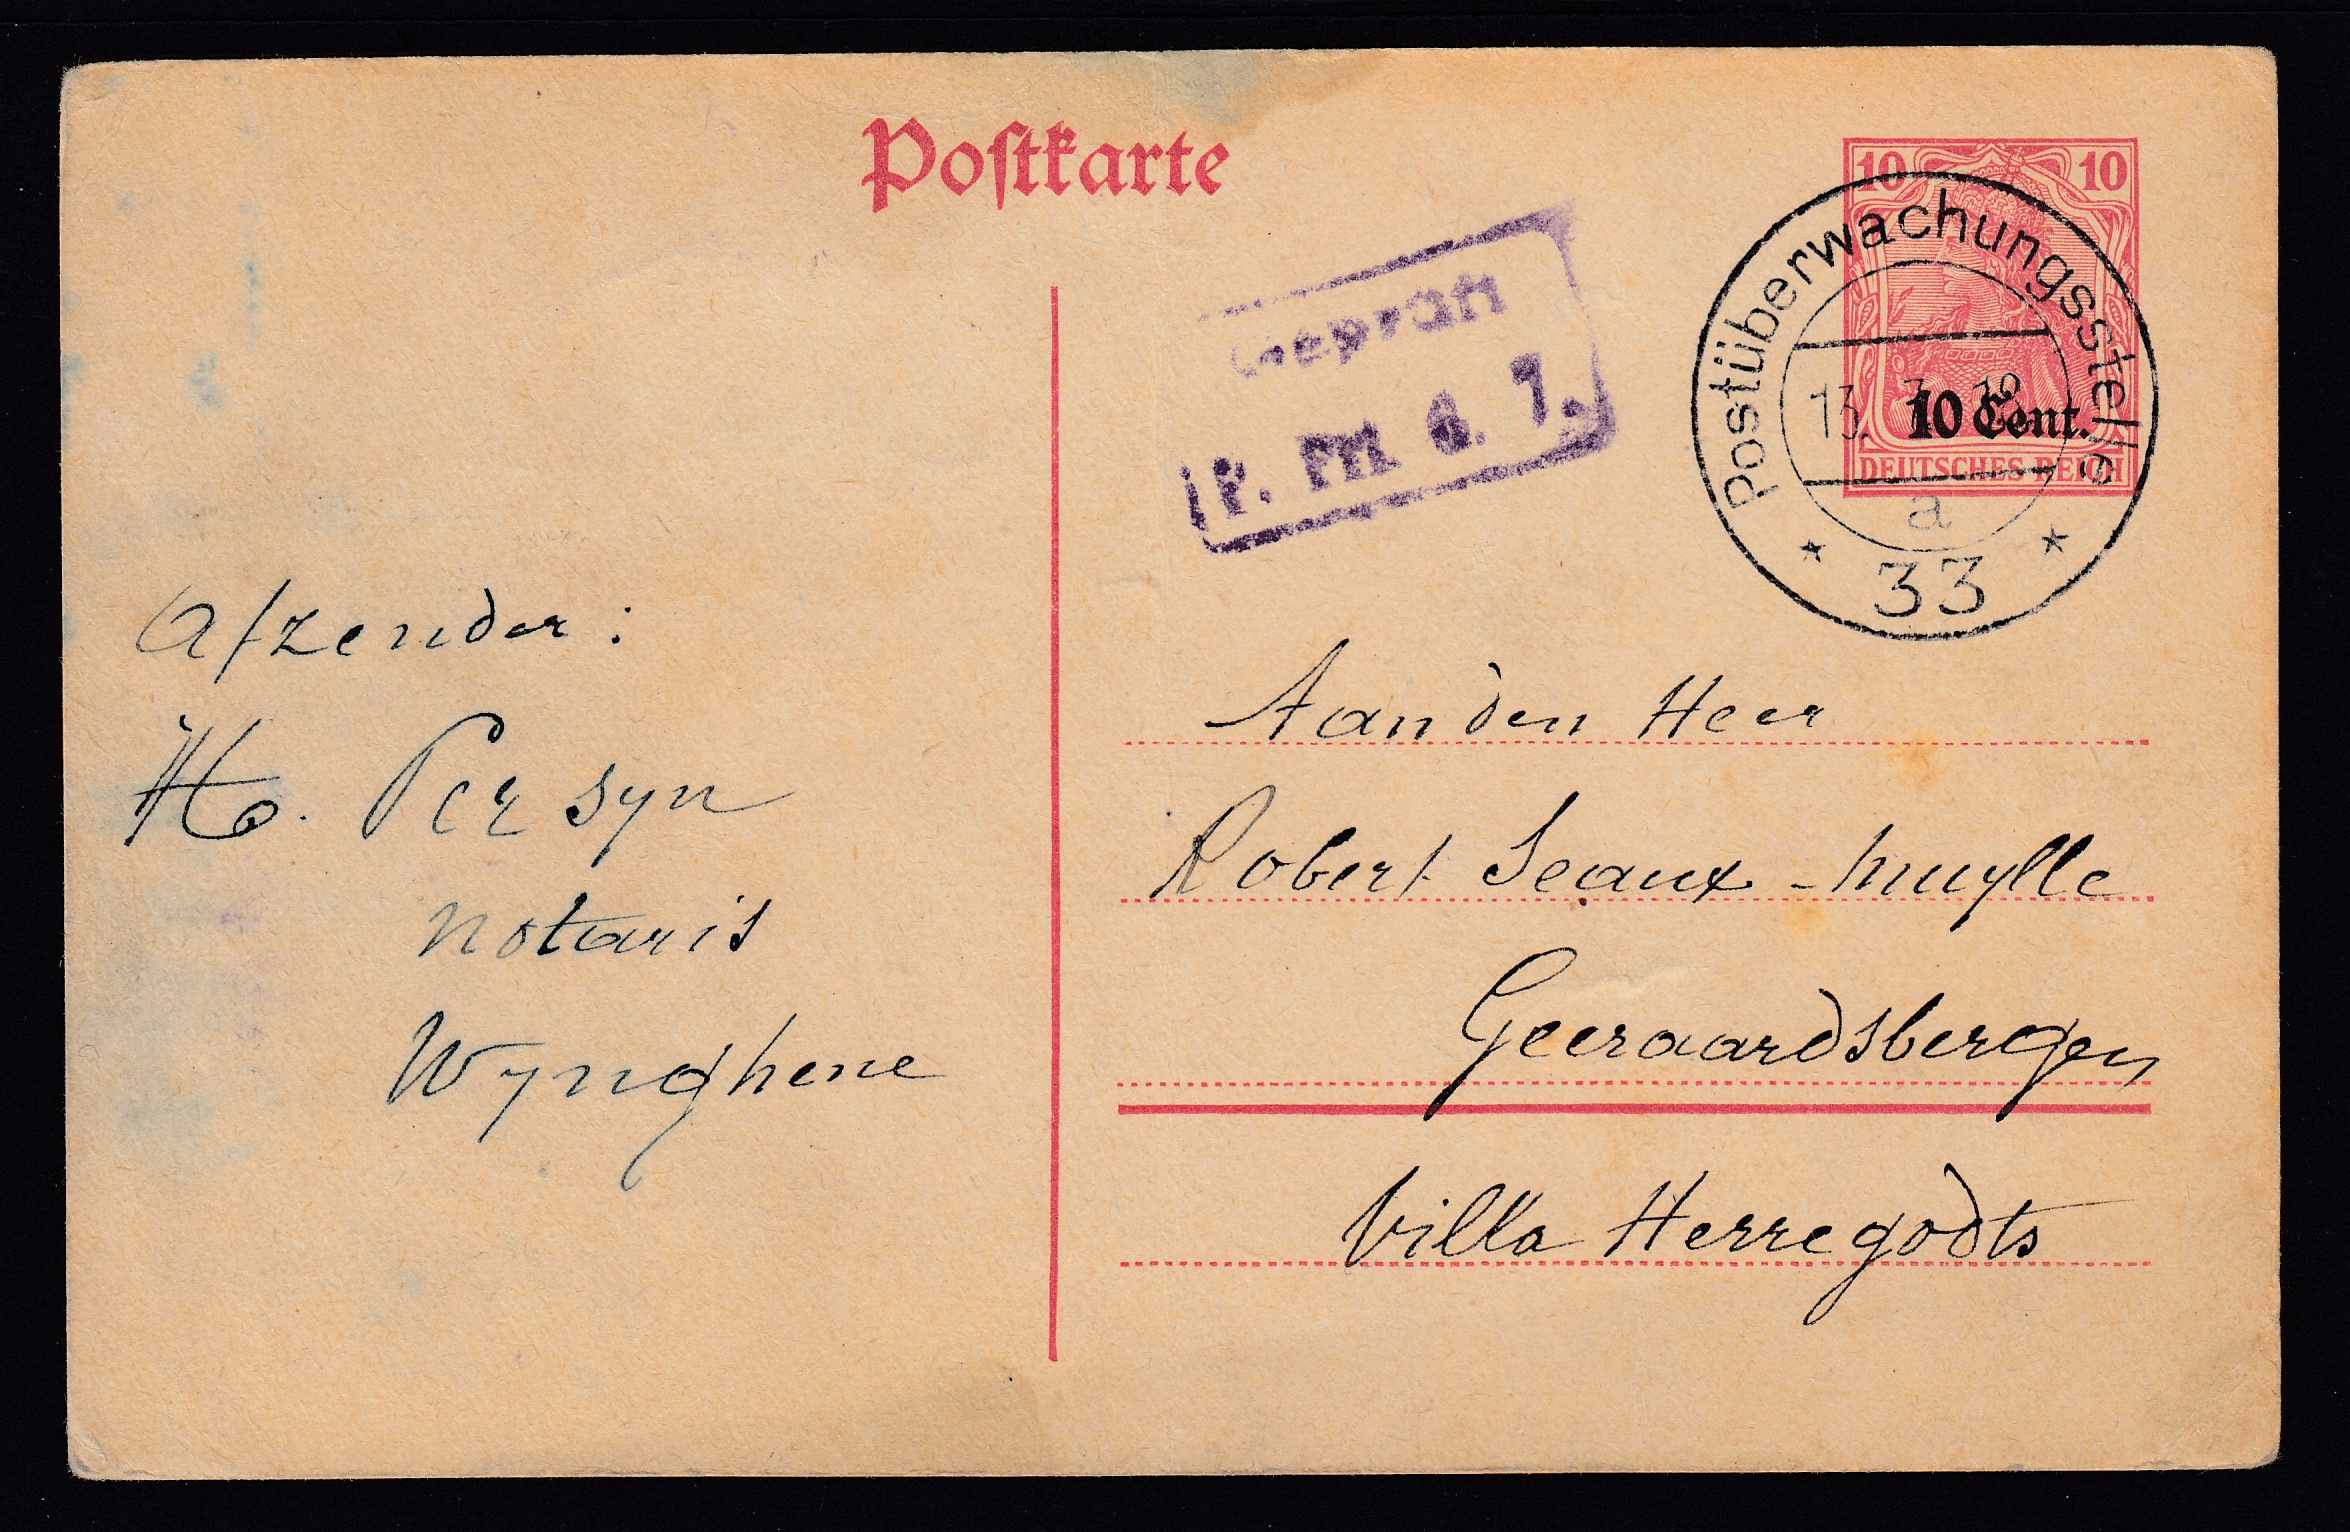 Postkarte
10 10
Postüberwachungsstelle
10 Cent.
DEUTSCHES REICH
a
* 33 *
Geprüft
P. FM. 6. 7.
Afzender:
H. Persyn
notaris
Wynghene
Aan den Heer
Robert Seaux - Muylle
Geeraardsbergen
Villa Herregodts